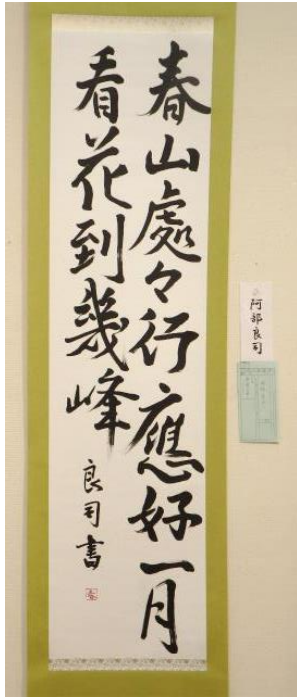 春山處々行應好一月
看花到幾峰
良司書
阿部良司